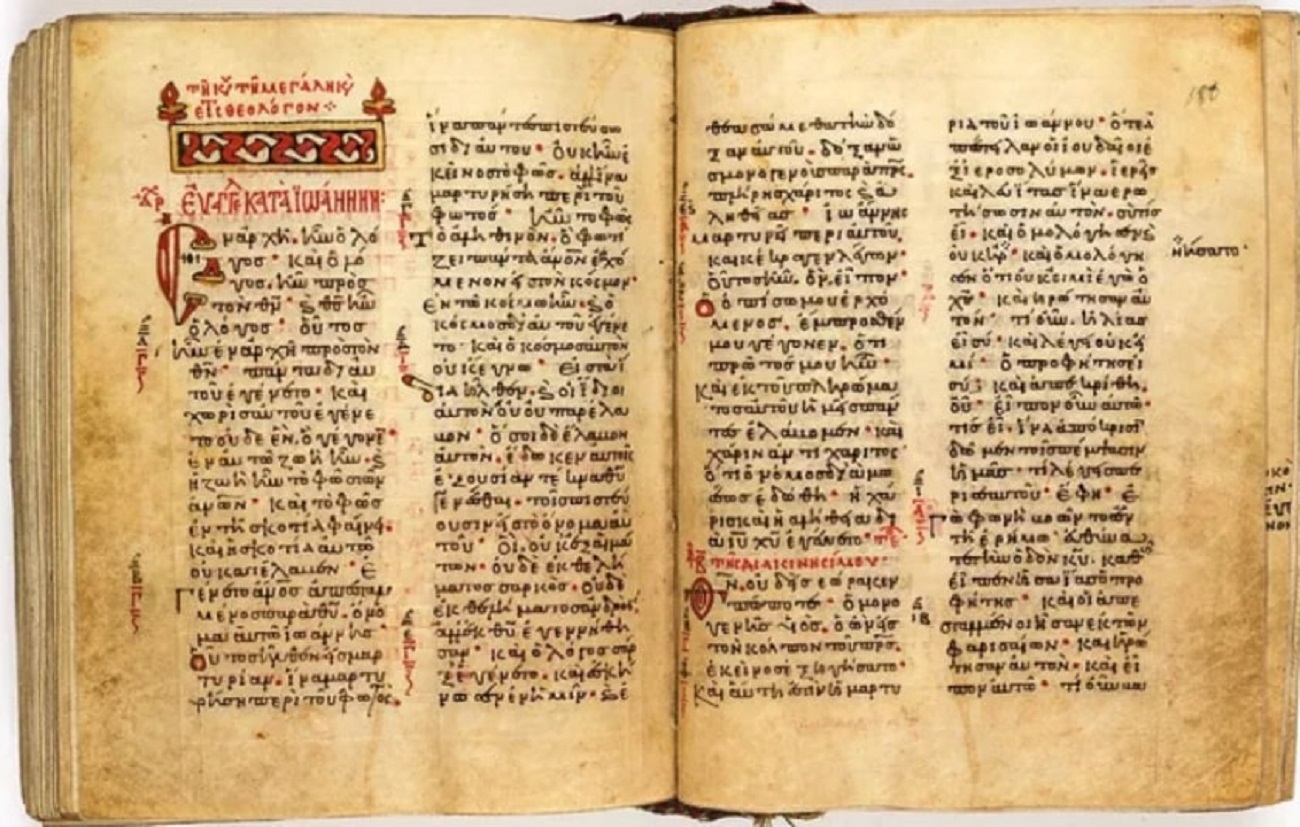 τῇ κυ τῇ μεγάλη κυ
εἰς θεολόγον
ΕΥΑΓΓ ΚΑΤΑ ΙΩΑΝΝΗΝ
Ἐν ἀρχῆ. ἦν ὁ λό
γος· καὶ ὁ λό
γος. ἦν πρὸς
τὸν θν· ϗ θς ἦν
ὁ λόγος· οὗτος
ἦν ἐν ἀρχῆ πρὸς τὸν
θν· πάντα δι αὐ
τοῦ ἐγένετο· καὶ
χωρὶς αὐτοῦ ἐγένε
το οὐδε ἕν. ὃ γέγονεν·
ἐν αὐτῶ ζωὴ ἦν. ϗ
ἡ ζωὴ ἦν τὸ φῶς τῶν
ἀνων· καὶ τὸ φῶς
ἐν τῆ σκοτία φαίνει.
καὶ ἡ σκοτία αὐτὸ
οὐ κατέλαβεν· Ἐ
γένετο ἄνος ἀπεσταλ
μένος παρὰ θυ· ὄνο
μα αὐτῶ ἰωάννης·
Οὗτος ἦλθεν εἰς μαρ
τυρίαν. ἵνα μαρτυ
ρήση περὶ τοῦ φωτός.
ἵνα πάντες πιστεύσω
σι δι αὐτοῦ· οὐκ ἦν ἐ
κεῖνος τὸ φῶς. ἀλλ ἵνα
μαρτυρήση περὶ τοῦ
φωτός· ἦν τὸ φῶς
τὸ ἀληθινὸν. ὃ φωτί
ζει πάντα ἄνον ἐρχό
μενον εἰς τὸν κόσμον·
Ἐν τῶ κόσμω ἦν. ϗ ὁ
κόσμος δι αὐτοῦ ἐγένε
το· καὶ ὁ κόσμος αὐτὸν
οὐκ ἔγνω· Εἰς τὰ ἴ
δια ἦλθεν. ϗ οἱ ἴδιοι
αὐτὸν οὐ παρέλα
βον· ὅσοι δὲ ἔλαβον
αὐτον. ἔδωκεν αὐτοῖς
ἐξουσίαν τέκνα θυ
γενέσθαι· τοῖς πιστεύ
ουσιν εἰς τὸ ὄνομα αὐ
τοῦ· Οἳ. οὐκ ἐξ αἱμά
των· οὐδὲ ἐκ θελή
ματος σαρκός· οὐδὲ
ἐκ θελήματος ἀνδρός·
ἀλλ ἐκ θυ ἐγεννήθη
σαν· καὶ ὁ λόγος σὰρξ
ἐγένετο. καὶ ἐσκή
νωσεν ἐν ἡμῖν· ϗ ἐ
θεασάμεθα τὴν δό
ξαν αὐτοῦ· δόξαν ὡς
μονογενοῦς παρὰ πρς.
πλήρης χάριτος ϗ ἀ
ληθείας· ἰωάννης
μαρτυρεῖ περὶ αὐτου.
καὶ κέκραγεν λέγων·
οὗτος ἦν. ὃν εἶπον·
ὁ ὀπίσω μου ἐρχό
μενος. ἔμπροσθέν
μου γέγονεν. ὅτι
πρῶτός μου ἦν·
Καὶ ἐκ τοῦ πληρώμα
τος αὐτοῦ ἡμεῖς πάν
τες ἐλάβομεν· καὶ
χάριν ἀντὶ χάριτος·
ὅτι ὁ νόμος διὰ μω
σέως ἐδόθη· ἡ χά
ρις καὶ ἡ ἀλήθεια δι
ὰ ιυ χυ ἐγένετο·
τῇ β τῆς διακινησίμου·
Θν. οὐδεὶς ἑώρακεν
πώποτε· ὁ μονο
γενὴς υἱός. ὁ ὢν εἰς
τὸν κόλπον τοῦ πρς.
ἐκεῖνος ἐξηγήσατο·
Καὶ αὕτη ἐστὶν ἡ μαρτυ
ρία τοῦ ἰωάννου· ὅτε ἀ
πέστειλαν οἱ ἰουδαῖοι ἐ
ξ ἱεροσολύμων. ἱερεῖς
καὶ λευίτας ἵνα ἐρω
τήσωσιν αὐτόν. σὺ τίς
εἶ· καὶ ὡμολόγησεν ϗ
οὐκ ἠρ· καὶ ὡμολόγη
σεν ὅτι οὐκ εἰμὶ ἐγὼ ὁ
χς· καὶ ἠρώτησαν αὐ
τόν· τί οὖν. ἠλίας
εἶ σύ· καὶ λέγει οὐκ εἰ
μί· ὁ προφήτης εἶ
σύ; καὶ ἀπεκρίθη.
οὔ· εἶπον οὖν αὐτῶ·
τίς εἶ. ἵνα ἀπόκρισι
δῶμεν τοῖς πέμψασιν
ἡμᾶς· τί λέγεις πε
ρὶ σεαυτοῦ· ἔφη· ἐ
γὼ φωνὴ βοῶντος ἐν
τῆ ἐρήμω· εὐθύνα
τε τὴν ὁδὸν κυ. καθὼς
εἶπεν ἡσαΐας ὁ προ
φήτης· καὶ οἱ ἀπε
σταλμένοι ἦσαν ἐκ τῶν
φαρισαίων· καὶ ἠρώ
τησαν αὐτὸν· καὶ εἶ
πον αὐτῶ· τί οὖν βα
ἠρνήσατο·